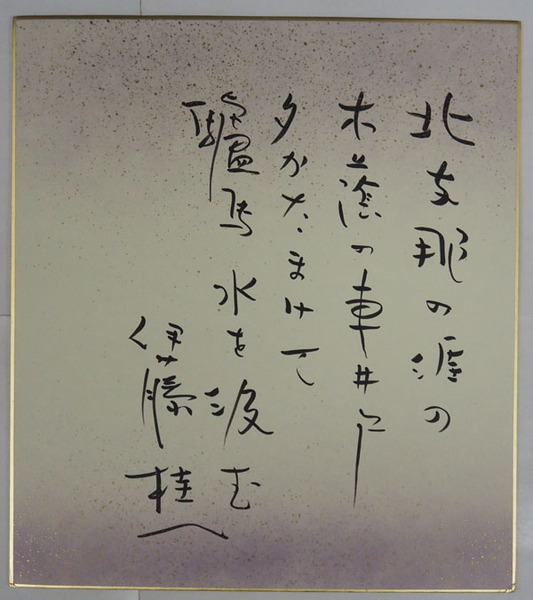 北支那の涯の
木蔭の車井戸
夕かたまけて
驢馬水を汲む
伊藤桂一